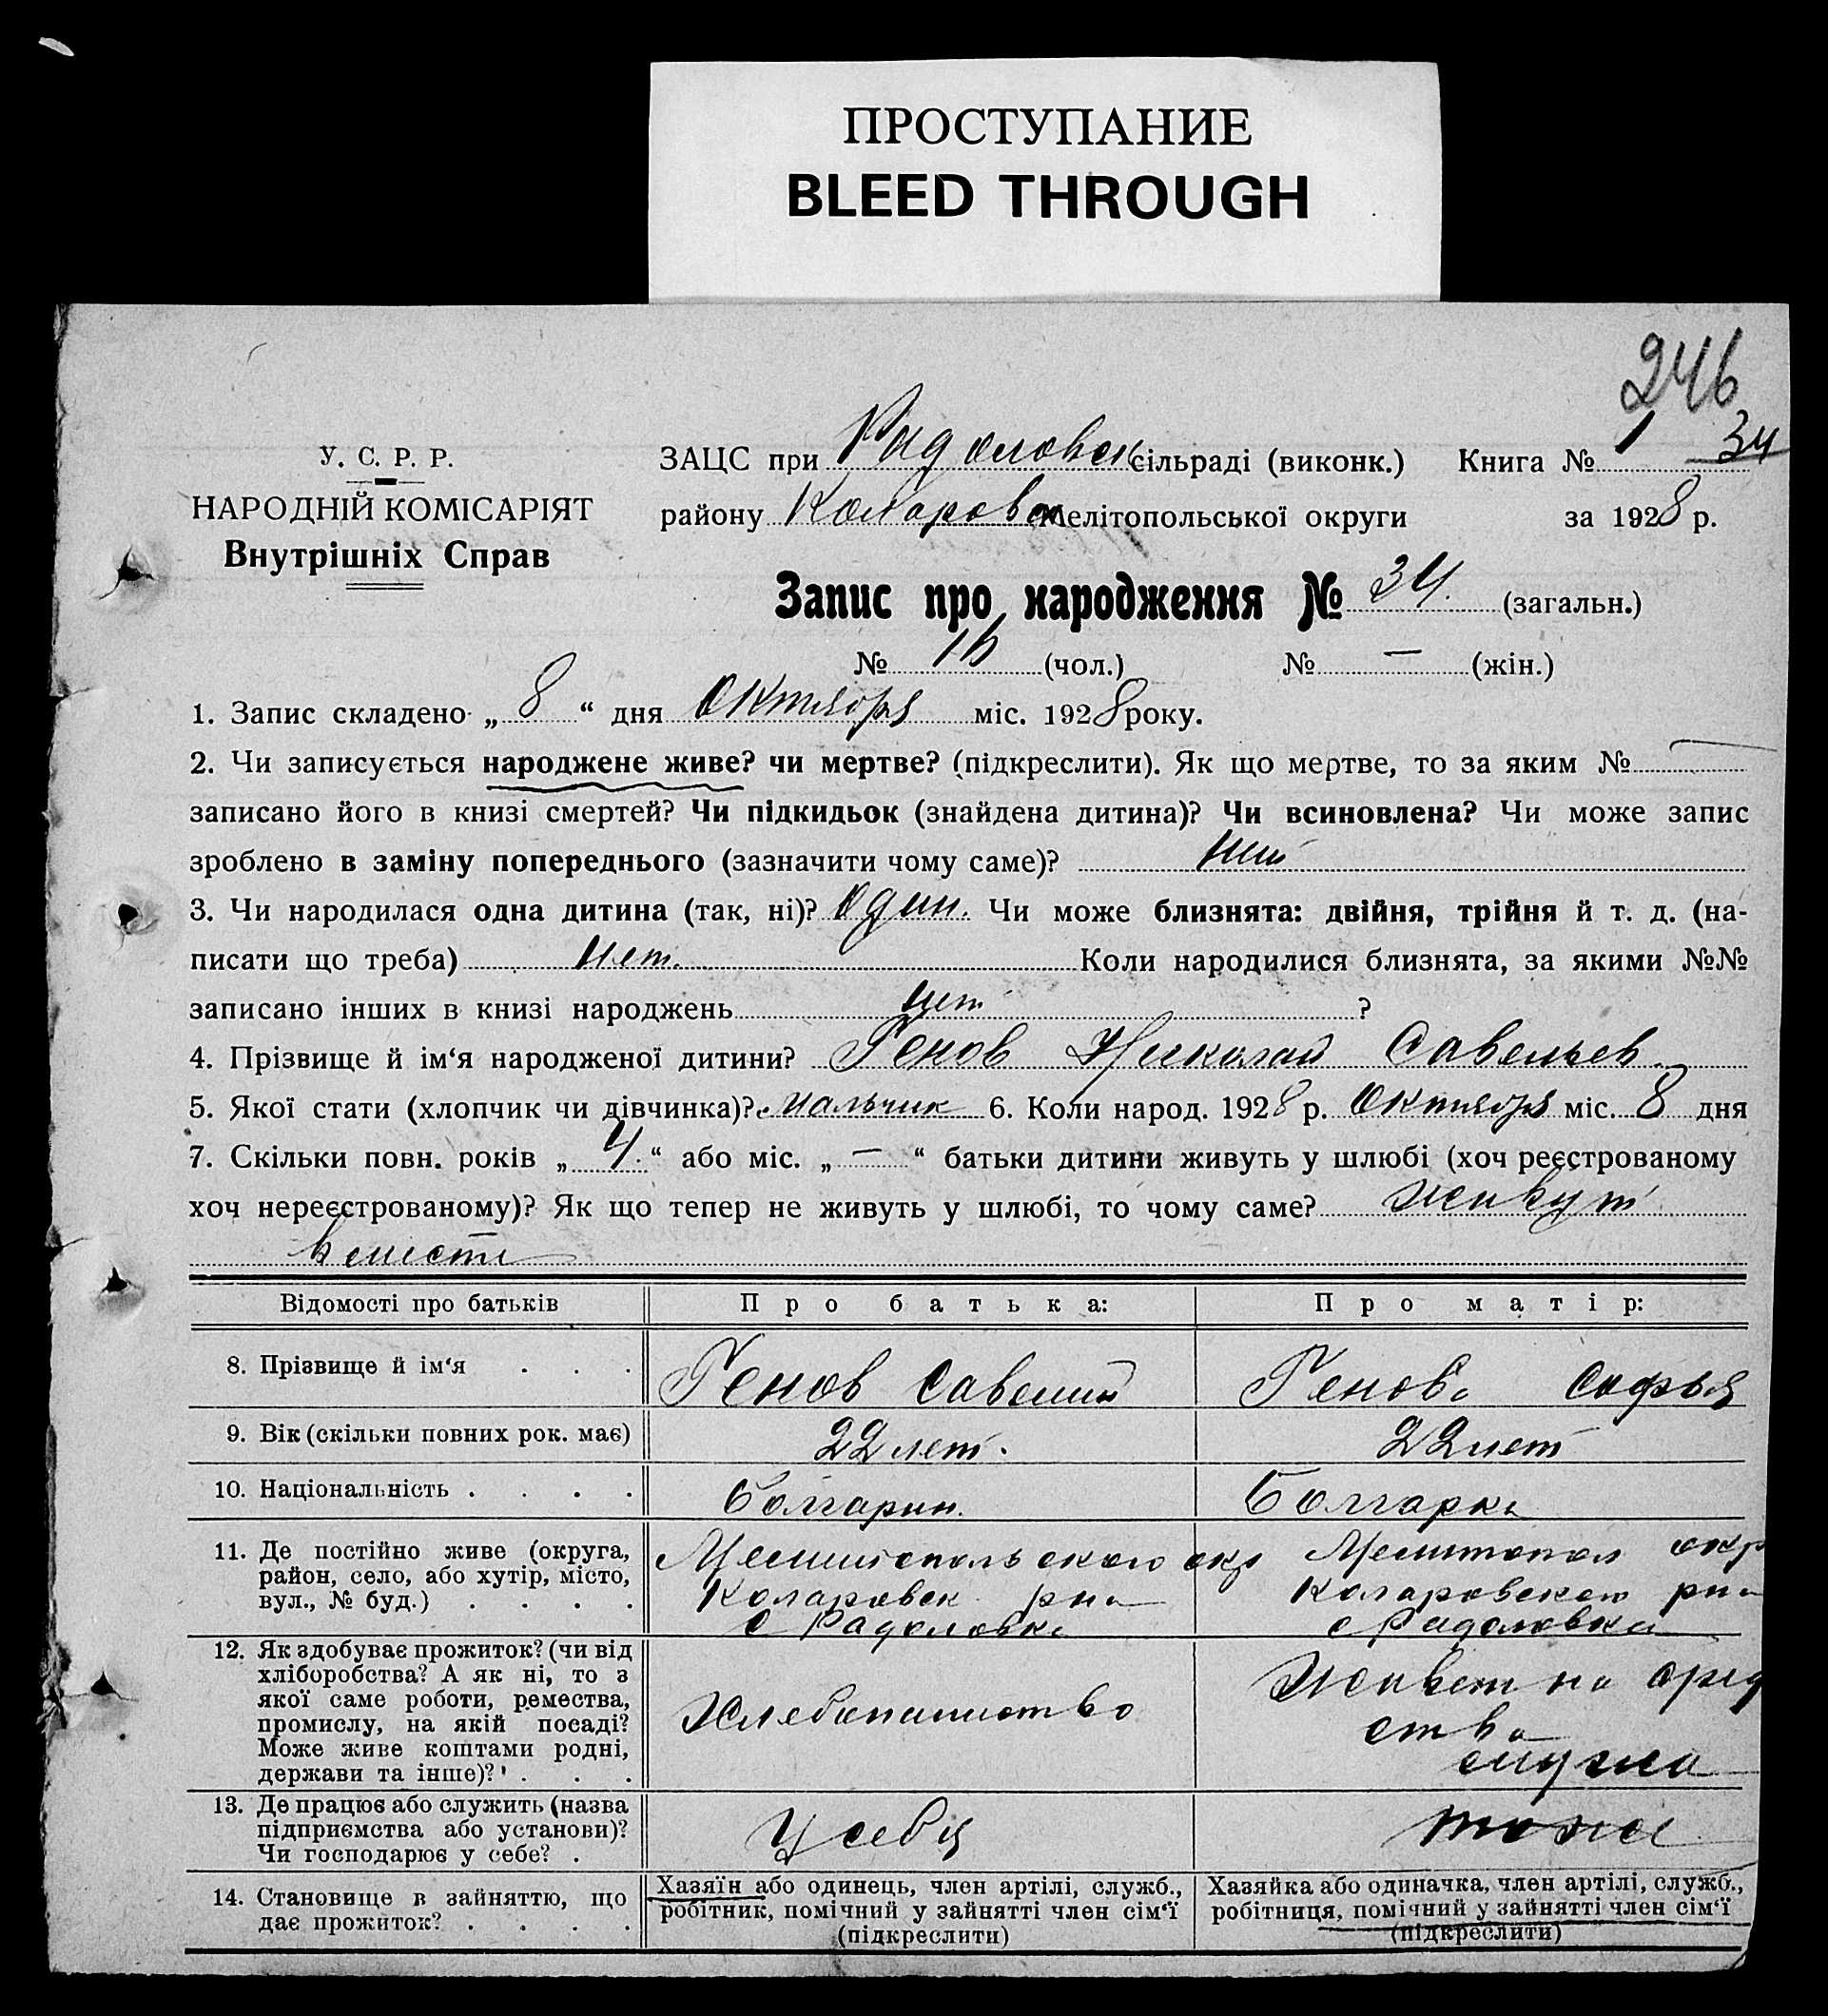 ПРОСТУПАНИЕ
BLEED THROUGH
246
У. С. Р. Р.
НАРОДНІЙ КОМІСАРІЯТ
Внутрішніх Справ
ЗАЦС при Радоловск сільраді (виконк.) Книга № 1 34
району Коларовск Мелітопольської округи за 1928 р.
Запис про народження № 34. (загальн.)
№ 16 (чол.) № — (жін.)
1. Запис складено „ 8 “ дня Октября міс. 1928 року.
2. Чи записується народжене живе? чи мертве? (підкреслити). Як що мертве, то за яким № —
записано його в книзі смертей? Чи підкидьок (знайдена дитина)? Чи всиновлена? Чи може запис
зроблено в заміну попереднього (зазначити чому саме)?
3. Чи народилася одна дитина (так, ні)? Один. Чи може близнята: двійня, трійня й т. д. (на-
писати що треба) Нет. Коли народилися близнята, за якими №№
записано інших в книзі народжень нет ?
4. Прізвище й ім‘я народженої дитини? Генов Николай Савельев.
5. Якої стати (хлопчик чи дівчинка)? мальчик 6. Коли народ. 1928 р. Октября міс. 8 дня
7. Скільки повн. років „ 4. “ або міс. „ — “ батьки дитини живуть у шлюбі (хоч реєстрованому
хоч нереєстрованому)? Як що тепер не живуть у шлюбі, то чому саме? живут
вместе
Відомості про батьків Про батька: Про матір:
8. Прізвище й ім‘я . . . Генов Савелий Генова Софья
9. Вік (скільки повних рок. має) 22 лет. 22 лет
10. Національність . . . . Болгарин. Болгарка
11. Де постійно живе (округа,
район, село, або хутір, місто,
вул., № буд.) . . . .
Мелитопольского окр
Коларовск рна
с Радоловка
Мелитопол окр
Коларовского рна
с Радоловка
12. Як здобуває прожиток? (чи від
хліборобства? А як ні, то з
якої саме роботи, ремества,
промислу, на якій посаді?
Може живе коштами родні,
держави та інше)? . . .
Хлебопашество
Живет на сред
ства
мужа
13. Де працює або служить (назва
підприємства або установи)?
Чи господарює у себе? .
У себя
тоже
14. Становище в зайняттю, що
дає прожиток? . . . .
Хазяїн або одинець, член артілі, служб.,
робітник, помічний у зайнятті член сім‘ї
(підкреслити)
Хазяйка або одиначка, член артілі, служб.,
робітниця, помічний у зайнятті член сім‘ї
(підкреслити)